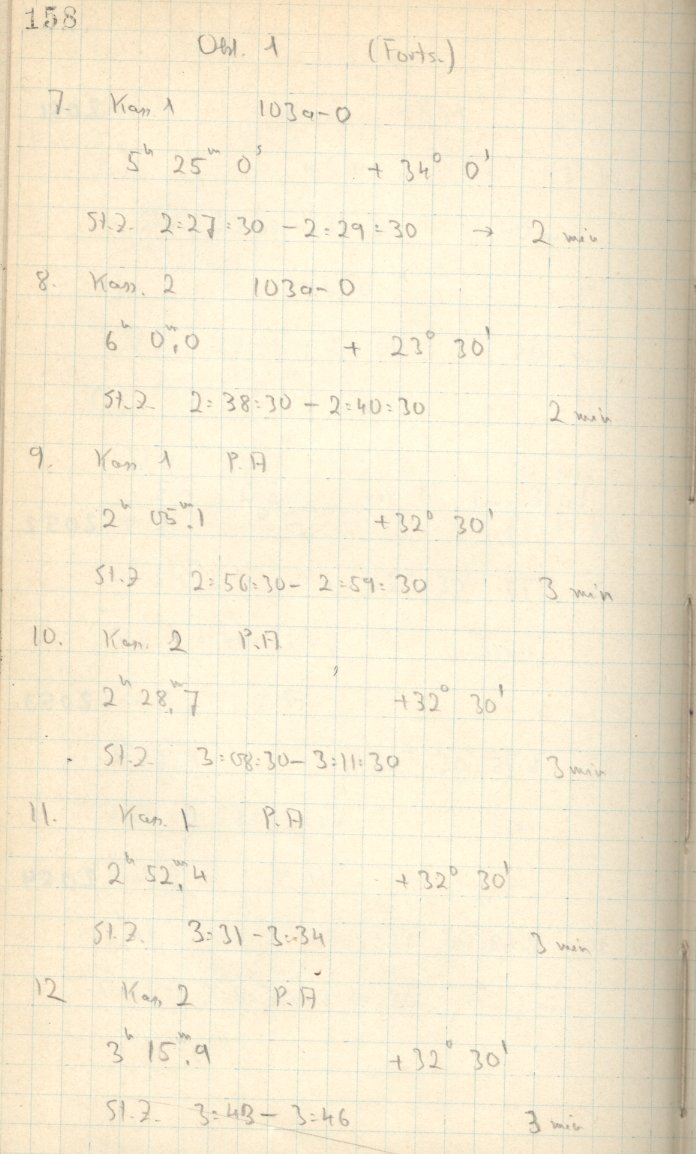 158
Obl. 1 (Forts.)
7. Kass 1 103a-O
5ʰ 25ᵐ 0ˢ + 34° 0'
St.Z. 2:27:30 - 2:29:30 → 2 min
8. Kass. 2 103a-O
6ʰ 0ᵐ,0 + 23° 30'
St.Z. 2:38:30 - 2:40:30 2 min
9. Kass 1 P.A
2ʰ 05ᵐ,1 +32° 30'
St.Z 2:56:30- 2:59:30 3 min
10. Kass. 2 P.A
2ʰ 28,ᵐ7 +32° 30'
St.Z. 3:08:30- 3:11:30 3 min
11. Kass. 1 P.A
2ʰ 52,ᵐ4 +32° 30'
St.Z. 3:31 - 3:34 3 min
12 Kass 2 P.A
3ʰ 15ᵐ,9 +32° 30'
St.Z. 3:43 - 3:46 3 min